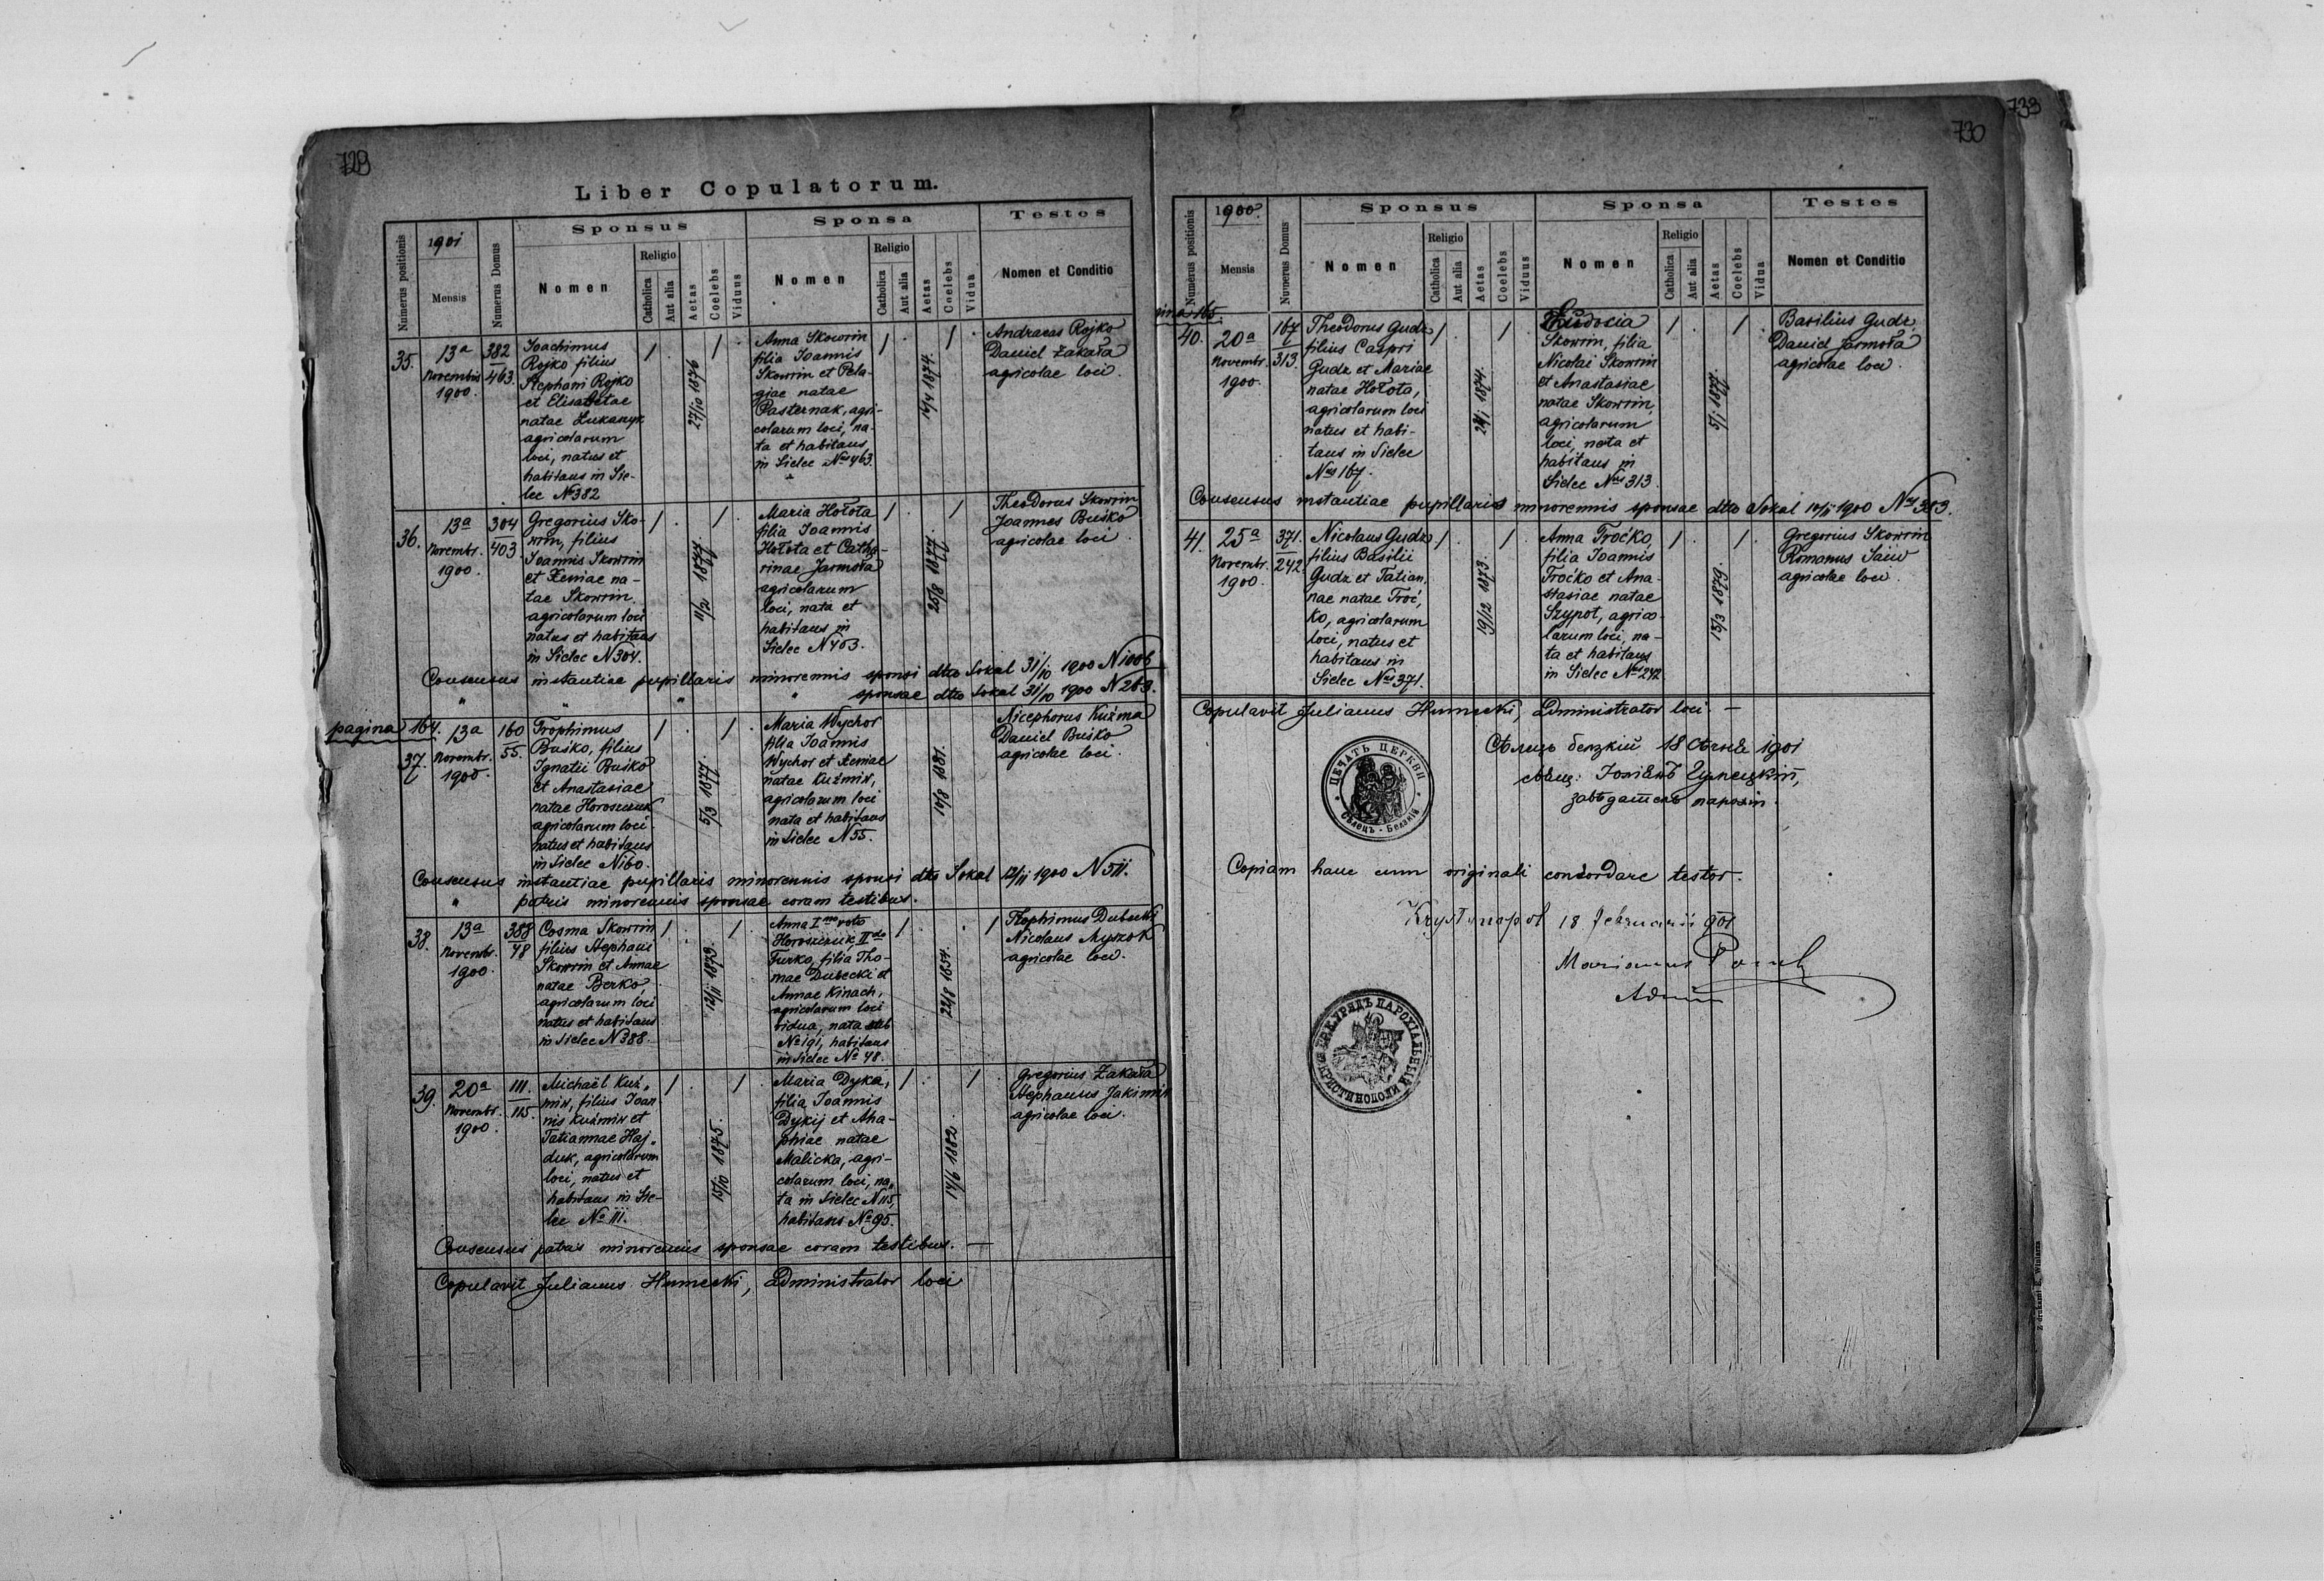 729
Liber Copulatorum.
Numerus positionis
1901
Mensis
Numerus Domus
Sponsus
Nomen
Religio
Catholica
Aut alia
Aetas
Coelebs
Viduus
Sponsa
Nomen
Religio
Catholica
Aut alia
Aetas
Coelebs
Vidua
Testes
Nomen et Conditio
35.
13a
Novembris
1900.
382
463.
Joachimus
Rojko filius
Stephani Rojko
et Elisabetae
natae Łukaszyk
agricolarum
loci, natus et
habitans in Sie-
lec No 382
1 . 27/10 1876 1 .
Anna Skowrin
filia Joannis
Skowrin et Pela-
giae natae
Pasternak, agri-
colarum loci, na-
ta et habitans
in Sielec Nus 463.
1 . 14/4 1874. 1 .
Andraeas Rojko
Daniel Żakała
agricolae loci.
36.
13a
Novembr.
1900.
304
403.
Gregorius Sko-
wrin, filius
Joannis Skowrin
et Xeniae na-
tae Skowrin,
agricolarum loci
natus et habitans
in Sielec N 304.
1 . 11/2 1877. 1 .
Maria Hołota
filia Joannis
Hołota et Catha-
rinae Jarmoła
agricolarum
loci, nata et
habitans in
Sielec N 403.
1 . 25/8 1877. 1 .
Theodorus Skowrin
Joannes Buśko
agricolae loci.
Consensus instantiae pupillaris minorennis sponsi dtto Sokal 31/10 1900 N 1006
" " " sponsae dtto Sokal 31/10 1900 N 283.
pagina 164.
37.
13a
Novembr.
1900.
160
55.
Trophimus
Buśko, filius
Ignatii Buśko
et Anastasiae
natae Horoszczuk
agricolarum loci
natus et habitans
in Sielec N 160.
1 . 5/3 1877. 1 .
Maria Wychor
filia Joannis
Wychor et Xeniae
natae Kuźmin,
agricolarum loci
nata et habitans
in Sielec N 55.
1 . 10/8 1881. 1 .
Nicephorus Kuźma
Daniel Buśko
agricolae loci.
Consensus instantiae pupillaris minorennis sponsi dtto Sokal 12/11 1900 N 511.
" patris minorennis sponsae coram testibus.
38.
13a
Novembr.
1900.
388
48
Cosma Skowrin
filius Stephani
Skowrin et Annae
natae Berko,
agricolarum loci
natus et habitans
in Sielec N 388.
1 . 12/11 1879. 1 .
Anna I mo voto
Horoszczuk II do
Furko, filia Tho-
mae Dubecki et
Annae Kinach,
agricolarum loci
vidua, nata sub
No 191, habitans
in Sielec No 48.
1 . 22/8 1854. . 1
Trophimus Dubecki
Nicolaus Myszok
agricolae loci.
39.
20a
Novembr.
1900.
111.
115.
Michaël Kuź-
min, filius Joan-
nis Kuźmin et
Tatiannae Haj-
duk, agricolarum
loci, natus et
habitans in Sie-
lec No 111.
1 . 15/10 1875. 1 .
Maria Dyka,
filia Joannis
Dykij et Aha-
phiae natae
Malicka, agri-
colarum loci, na-
ta in Sielec N 115,
habitans No 95.
1 . 14/6 1882. 1 .
Gregorius Żakała
Stephanus Jakimin
agricolae loci.
Consensus patris minorennis sponsae coram testibus. —
Copulavit Julianus Humecki, Administrator loci
733
730
Numerus positionis
1900.
Mensis
Numerus Domus
Sponsus
Nomen
Religio
Catholica
Aut alia
Aetas
Coelebs
Viduus
Sponsa
Nomen
Religio
Catholica
Aut alia
Aetas
Coelebs
Vidua
Testes
Nomen et Conditio
165.
40.
20a
Novembr.
1900.
167
313.
Theodorus Gudz
filius Caspri
Gudz et Mariae
natae Hołota,
agricolarum loci
natus et habi-
tans in Sielec
Nus 167.
1 . 24/1 1874. 1 .
Eudocia
Skowrin, filia
Nicolai Skowrin
et Anastasiae
natae Skowrin,
agricolarum
loci, nata et
habitans in
Sielec Nus 313.
1 . 5/1 1877. 1 .
Basilius Gudz.
Daniel Jarmoła
agricolae loci.
Consensus instantiae pupillaris minorennis sponsae dtto Sokal 10/11 1900 Nus 303.
41.
25a
Novembr.
1900.
371.
242.
Nicolaus Gudz
filius Basilii
Gudz et Tatian-
nae natae Troć-
ko, agricolarum
loci, natus et
habitans in
Sielec Nus 371.
1 . 19/12 1873. 1 .
Anna Troćko
filia Joannis
Troćko et Ana-
stasiae natae
Szypot, agrico-
larum loci, na-
ta et habitans
in Sielec Nus 242
1 . 15/3 1879. 1 .
Gregorius Skowrin
Romanus Saiw
agricolae loci.
Copulavit Julianus Humecki, Administrator loci. —
Сѣлець белзкій 18 Сѣчня 1901
свящ. Юліянъ Гумецкій,
завѣдатель парохіи.
ПЕЧАТЬ ЦЕРКВИ
Сѣлецъ - Белзкій
Copiam hanc cum originali concordare testor.
Krystynopol 18 februarii 901
Marianus
Adm
ГР. К. УРЯДЪ ПАРОХІАЛЬНЫЙ
КРИСТИНОПОЛИ
Z drukarni E. Winiarza